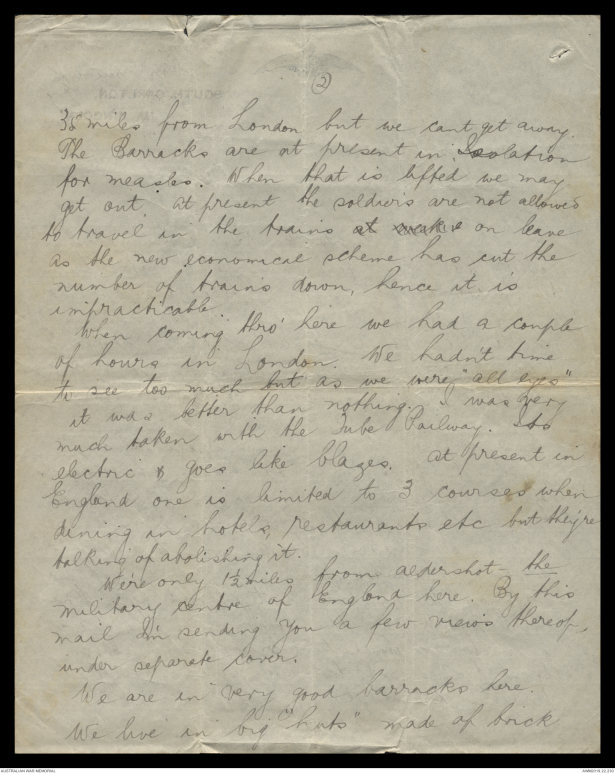 (2)
38 miles from London but we cant get away.
The Barracks are at present in Isolation
for measles. When that is lifted we may
get out. At present the soldiers are not allowed
to travel in the trains at on leave
as the new economical scheme has cut the
number of trains down, hence it is
impracticable.
When coming thro' here we had a couple
of hours in London. We hadn't time
to see too much but as we were "all eyes"
it was better than nothing. I was very
much taken with the Tube Railway. Its
electric & goes like blazes. At present in
England one is limited to 3 courses when
dining in hotels, restaurants etc but they're
talking of abolishing it.
We're only 1½ miles from Aldershot - the
military centre of England here. By this
mail I'm sending you a few views thereof,
under separate cover.
We are in very good barracks here.
We live in big "huts" made of brick
AUSTRALIAN WAR MEMORIAL